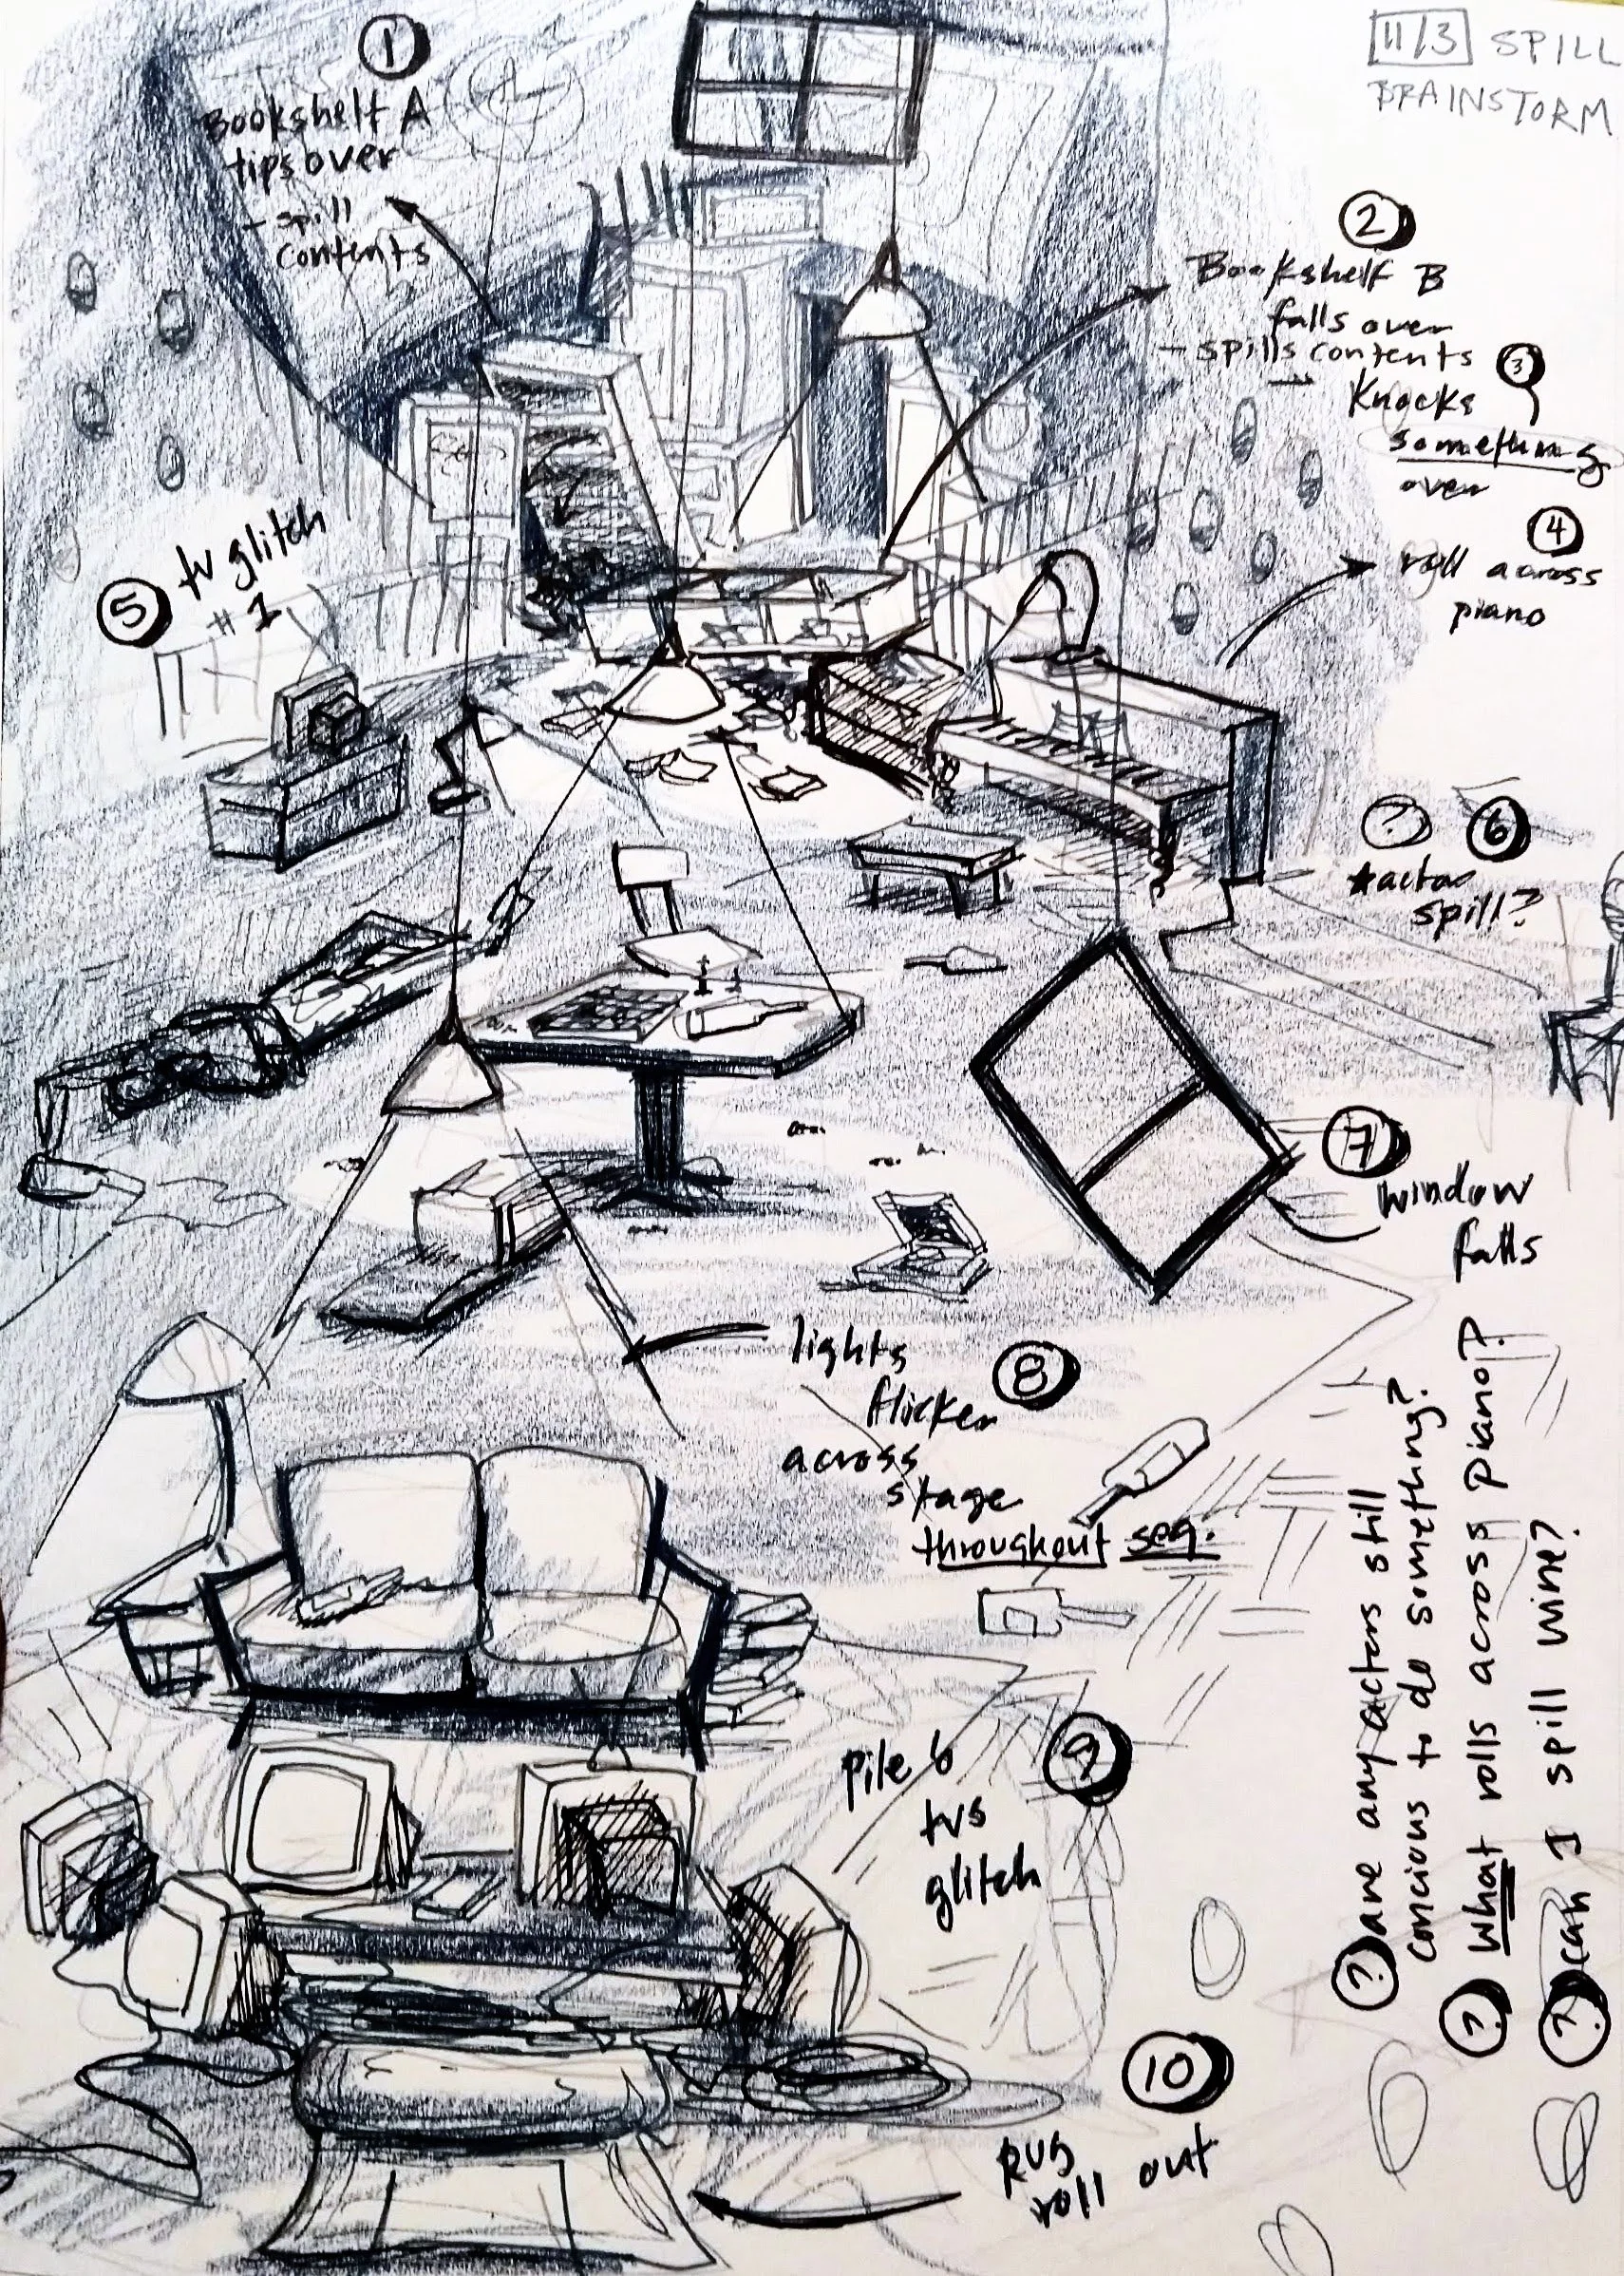 11/3 SPILL
BRAINSTORM
1
Bookshelf A
tips over
- spill
contents
2
Bookshelf B
falls over
- spills contents
3
Knocks
something
over
4
roll across
piano
5
tv glitch
#1
? 6
*actor
spill?
7
window
falls
lights
8
flicker
across
stage
throughout seq.
9
pile 6
tvs
glitch
10
Rug
roll out
? are any actors still
concious to do something?
? What rolls across piano?
? can I spill wine?